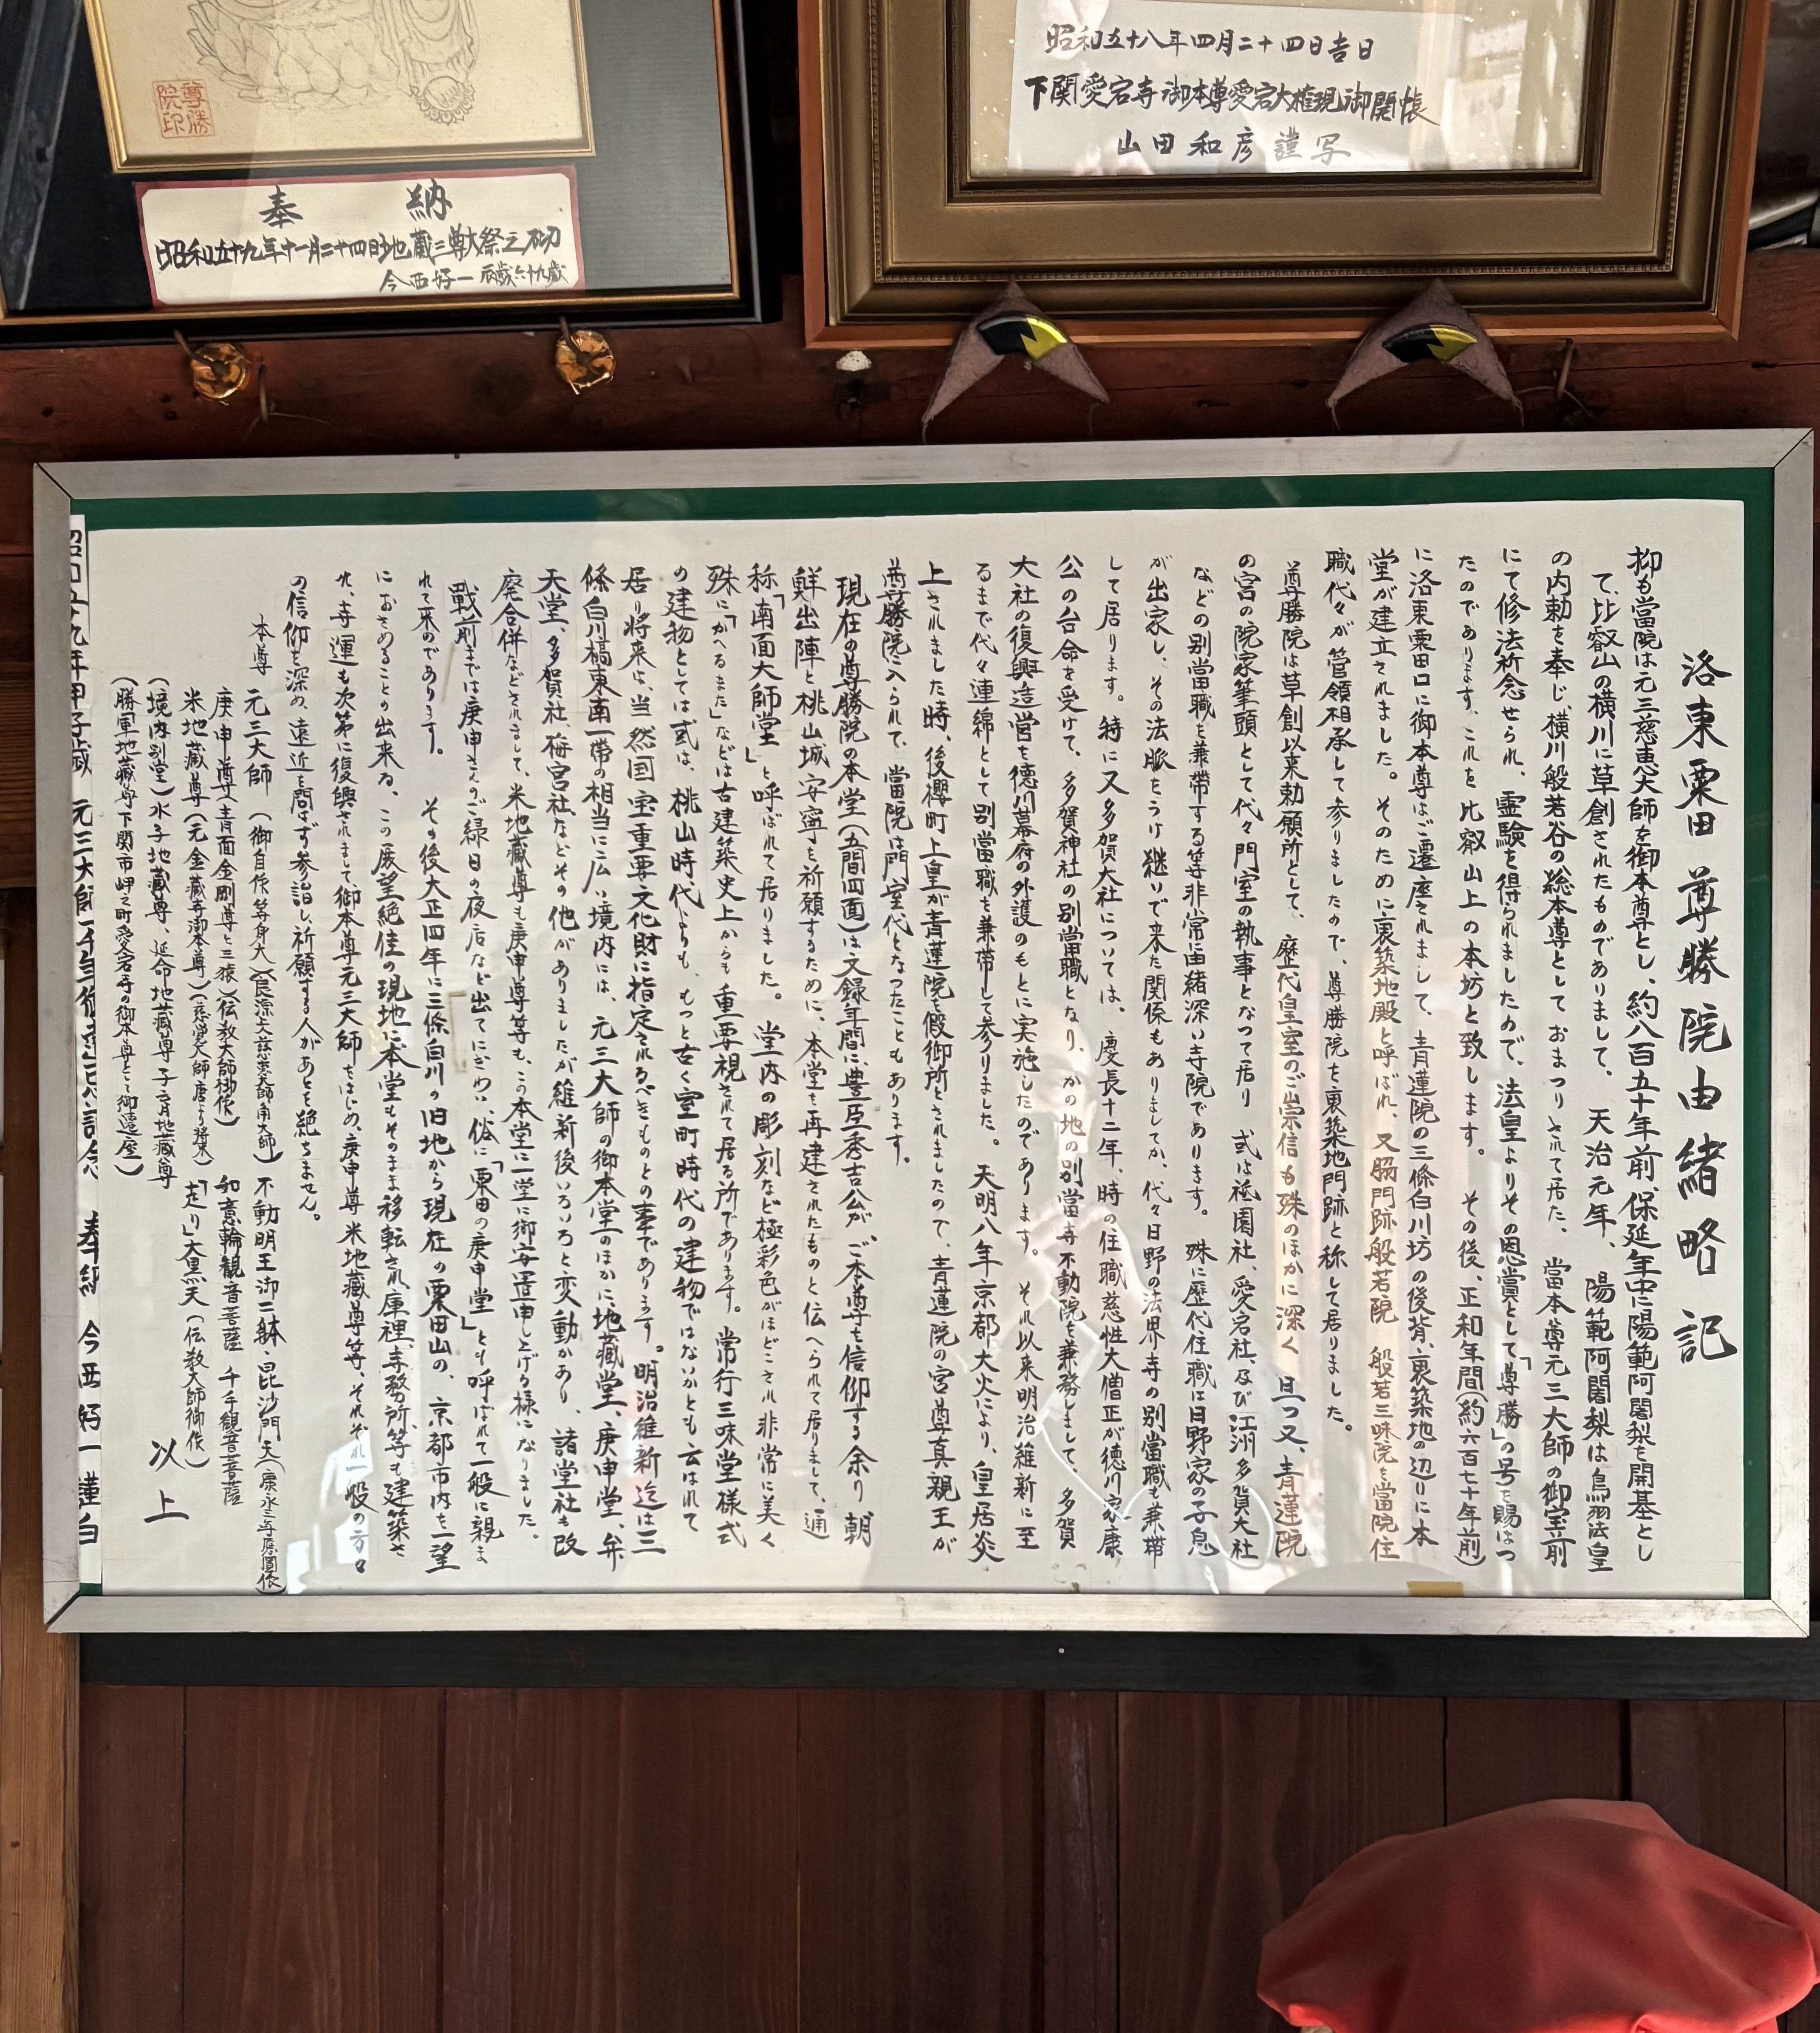 尊勝
院印
奉納
昭和五十九年十一月二十四日地蔵三尊大祭之砌
今西好一 辰歳六十九歳
昭和五十八年四月二十四日吉日
下関愛宕寺御本尊愛宕大権現御開帳
山田和彦謹写
洛東粟田 尊勝院由緒略記
抑も當院は元三慈恵大師を御本尊とし、約八百五十年前、保延年中に陽範阿闍梨を開基とし
て、比叡山の横川に草創されたものでありまして、天治元年、陽範阿闍梨は鳥羽法皇
の内勅を奉じ、横川般若谷の総本尊としておまつりされて居た、當本尊元三大師の御宝前
にて修法祈念せられ、霊験を得られましたので、法皇よりその恩賞として「尊勝」の号を賜はつ
たのであります、これを比叡山上の本坊と致します。その後、正和年間(約六百七十年前)
に洛東粟田口に御本尊はご遷座されまして、青蓮院の三條白川坊の後背、裏築地の辺りに本
堂が建立されました。そのために裏築地殿と呼ばれ、又脇門跡般若院 般若三昧院を當院住
職代々が管領相承して参りましたので、尊勝院を裏築地門跡と称して居りました。
尊勝院は草創以来勅願所として、歴代皇室のご崇信も殊のほかに深く 且つ又、青蓮院
の宮の院家筆頭として代々門室の執事となつて居り 或は祗園社、愛宕社、及び江洲多賀大社
などの別當職を兼帯する等非常に由緒深い寺院であります。殊に歴代住職は日野家の子息
が出家し、その法脈をうけ継いで来た関係もありましてか、代々日野の法界寺の別當職も兼帯
して居ります。特に又多賀大社については、慶長十二年、時の住職慈性大僧正が徳川家康
公の台命を受けて、多賀神社の別當職となり、かの地の別當寺不動院を兼務しまして、多賀
大社の復興造営を徳川幕府の外護のもとに実施したのであります。それ以来明治維新に至
るまで代々連綿として別當職を兼帯して参りました。天明八年京都大火により、皇居炎
上されました時、後櫻町上皇が青蓮院を假御所とされましたので、青蓮院の宮尊真親王が
尊勝院に入られて、當院は門室代となつたこともあります。
現在の尊勝院の本堂(五間四面)は文録年間に豊臣秀吉公が、ご本尊を信仰する余り 朝
鮮出陣と桃山城安寧を祈願するために、本堂を再建されたものと伝へられて居りまして、通
称「南面大師堂」と呼ばれて居りました。堂内の彫刻など極彩色がほどこされ非常に美く
殊に「かへるまた」などは古建築史上からも重要視されて居る所であります。常行三昧堂様式
の建物としては或は、桃山時代よりも、もつと古く室町時代の建物ではないかとも云はれて
居り将来は、当然国宝重要文化財に指定されるべきものとの事であります。明治維新迄は三
條白川橋東南一帯の相当に広い境内には、元三大師の御本堂のほかに、地蔵堂、庚申堂、弁
天堂、多賀社、梅宮社、などその他がありましたが維新後いろいろと変動があり、諸堂社も改
廃合併などされまして、米地蔵尊も庚申尊等も、この本堂に一堂に御安置申し上げる様になりました。
戦前までは庚申さんのご縁日の夜店など出てにぎわい、俗に「粟田の庚申堂」とも呼ばれて一般に親ま
れて来のであります。その後大正四年に三條白川の旧地から現在の粟田山の、京都市内を一望
におさめることの出来る、この展望絶佳の現地に本堂もそのまま移転され、庫裡、寺務所、等も建築さ
れ、寺運も次第に復興されまして、御本尊元三大師をはじめ、庚申尊 米地蔵尊等、それぞれ一般の方々
の信仰を深め、遠近を問はず参詣し、祈願する人があとを絶ちません。
本尊 元三大師(御自作等身大)(良源大慈恵大師角大師) 不動明王御二躰、毘沙門天(康永三年応圓作)
庚申尊(青面金剛尊と三猿)(伝教大師御作) 如意輪観音菩薩 千手観音菩薩
米地蔵尊(元金蔵寺御本尊)(慈覚大師唐より将来)「走り」大黒天(伝教大師御作)
(境内別堂)水子地蔵尊、延命地蔵尊 子育地蔵尊
(勝軍地蔵尊下関市岬之町愛宕寺の御本尊として御遷座)
以上
昭和五十九年甲子歳 元三大師一千年御遠忌記念 奉納 今西好一謹白